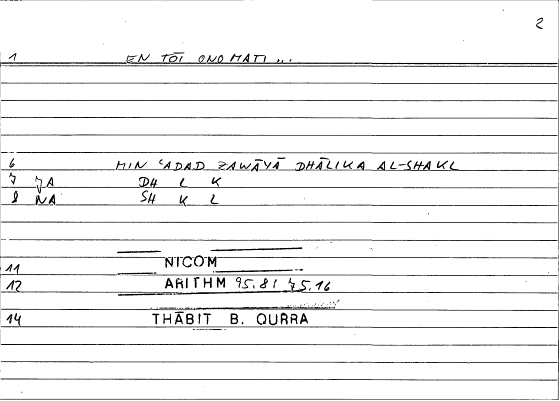 2
1 EN TŌI ONOMATI ...
6 MIN ʿADAD ZAWĀYĀ DHĀLIKA AL-SHAKL
7 ҘA DH L K
8 NA SH K L
11 NICOM
12 ARITHM 95.8 / 75.16
14 THĀBIT B. QURRA